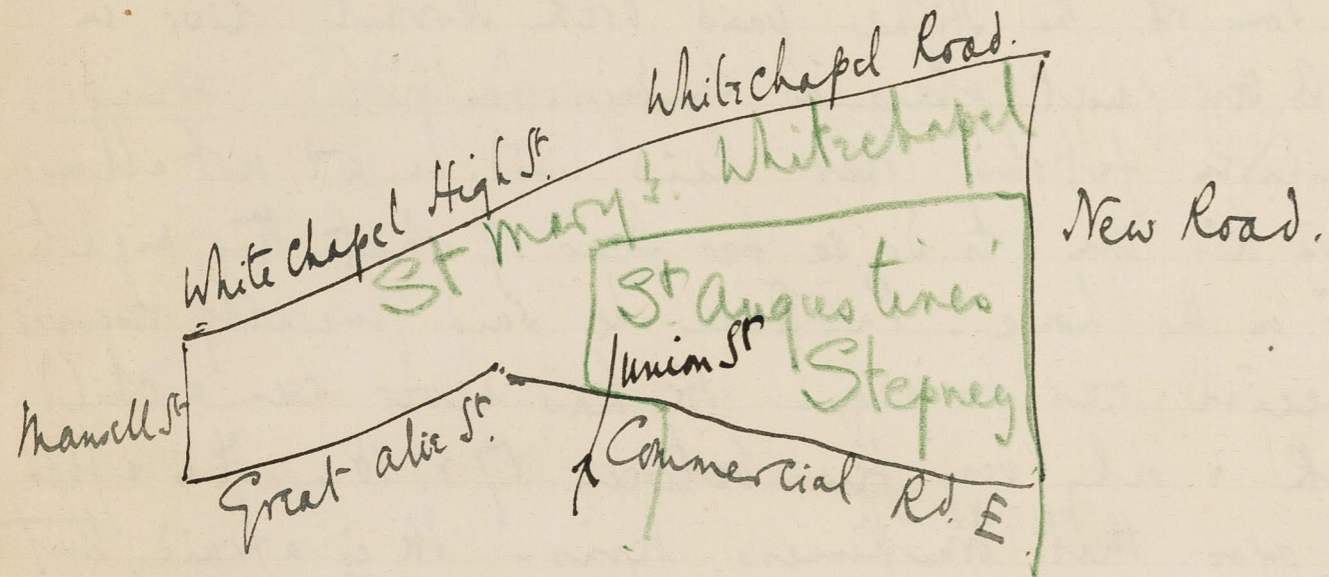 Whitechapel Road.
Whitechapel High St.
St Mary's. Whitechapel
New Road.
St Augustines
Stepney
Union St
Mansell St
Great Alie St.
Commercial Rd. E.